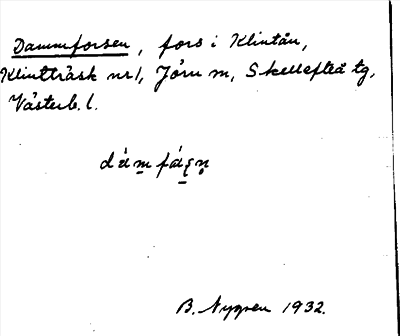 Dammforsen, fors i Klintån,
Klintträsk nr 1, Jörn m, Skellefteå tg,
Västerb. l.
B. Nygren 1932.